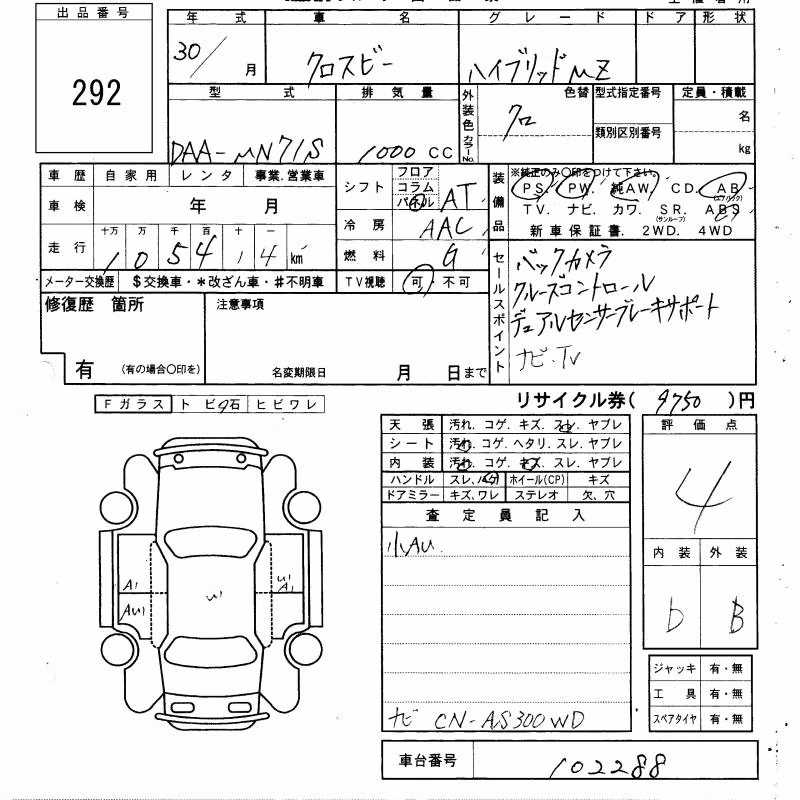 出品番号
292
年 式 車 名 グ レ ー ド ド ア 形 状
30/ 月 クロスビー ハイブリッド MZ
型 式 排 気 量 外装色 カラーNo. 色替 型式指定番号 定員・積載
DAA-MN71S 1000 CC クロ 類別区別番号 名
kg
車 歴 自 家 用 レ ン タ 事業.営業車
車 検 年 月
走 行 十万 万 千 百 十 一
1 0 5 4 1 4 km
メーター交換歴 $交換車・*改ざん車・#不明車
シ フ ト フロア コラム パネル AT
冷 房 AAC
燃 料 G
TV視聴 可・不可
装備品
※純正のみ〇印をつけて下さい。
PS. PW. 純AW. CD. AB(エアバック)
TV. ナビ. カワ. SR.(サンルーフ) ABS
新車保証書. 2WD. 4WD
セールスポイント
バックカメラ
クルーズコントロール
デュアルセンサーブレーキサポート
ナビ・TV
修復歴 箇所
有 (有の場合〇印を)
注意事項
名変期限日 月 日まで
リサイクル券( 9750 )円
Fガラス ト ビ 石 ヒ ビ ワ レ
天 張 汚れ. コゲ. キズ. スレ. ヤブレ
シ ー ト 汚れ. コゲ. ヘタリ. スレ. ヤブレ
内 装 汚れ. コゲ. キズ. スレ. ヤブレ
ハンドル スレ、ハゲ ホイール(CP) キズ
ドアミラー キズ、ワレ ステレオ 欠、穴
査 定 員 記 入
小AU
ナビ CN-AS300WD
評 価 点
4
内 装 外 装
b B
A1 U1 A1
AU1 U1
ジャッキ 有・無
工 具 有・無
スペアタイヤ 有・無
車台番号 102288